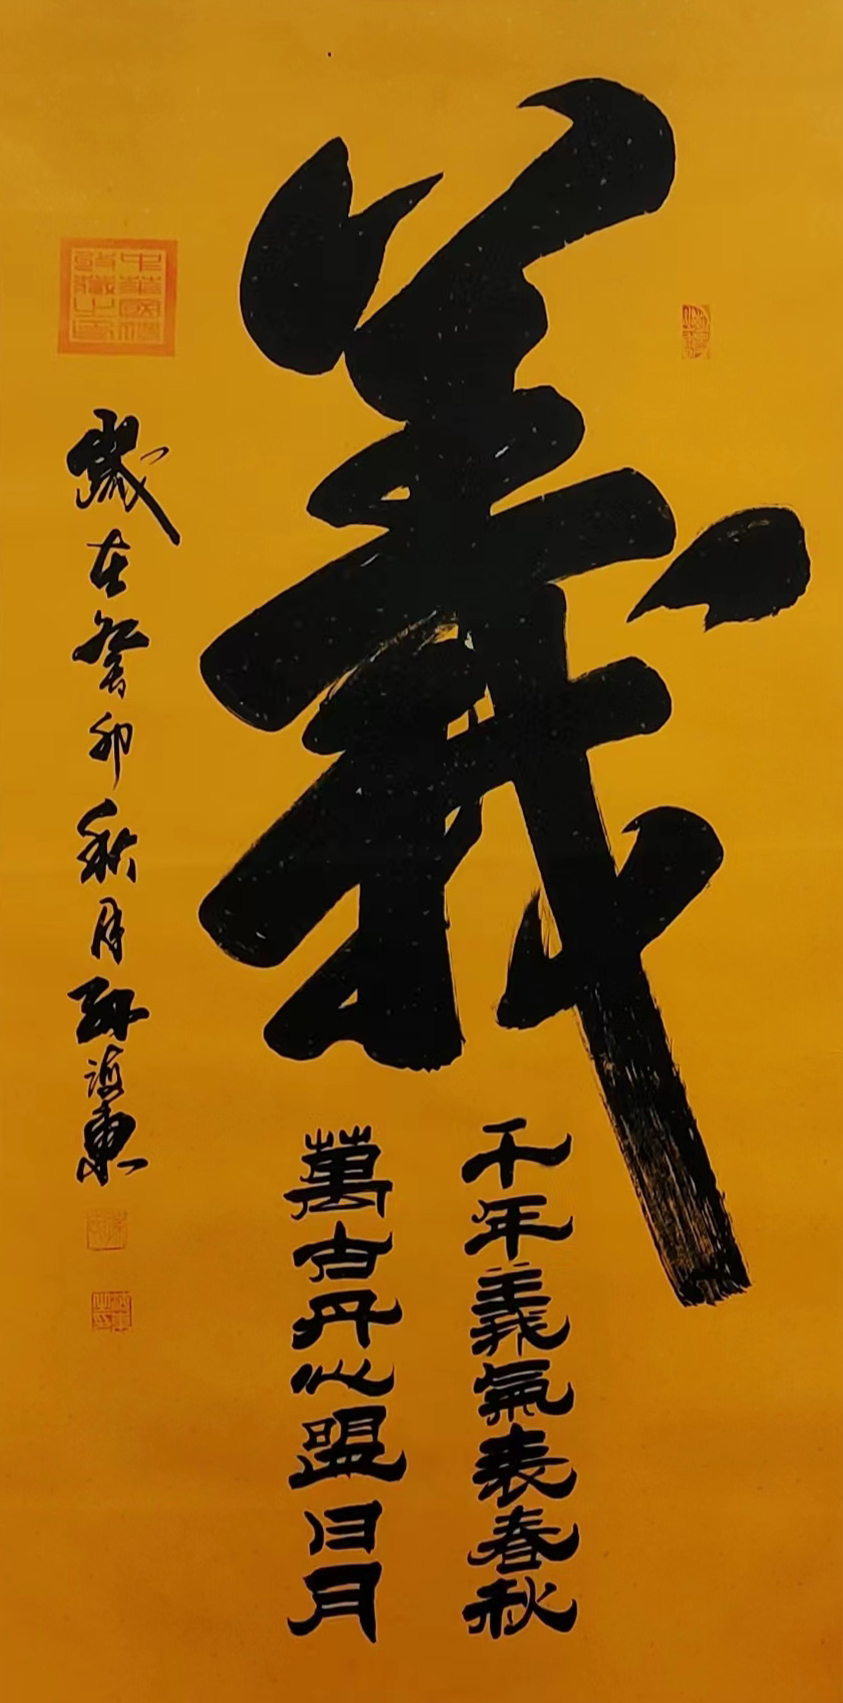 義
千年義氣表春秋
萬古丹心盟日月
歲在癸卯秋月孫海東